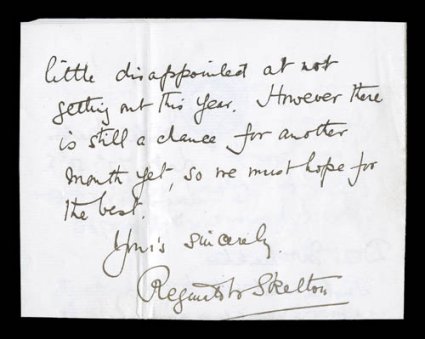 little disappointed at not
getting out this year. However there
is still a chance for another
month yet, so we must hope for
the best.
Yours sincerely.
Reginald Skelton